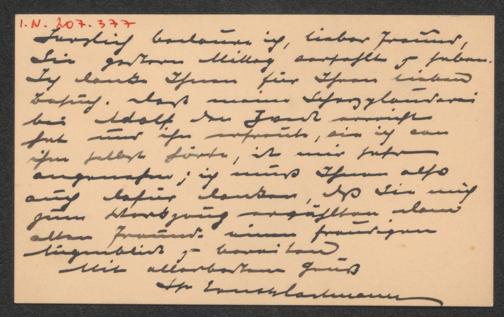 I.N. 207.377
Herzlich bedaure ich, lieber Freund,
Sie gestern Mittag verfehlt z haben.
Ich danke Ihnen für Ihren lieben
Besuch. Daß meine
bei Adolf erreicht
hat und ihn erfreute, wie ich von
ihm selbst hörte, ist mir sehr
angenehm; ich muß Ihnen also
auch dafür danken, daß Sie mich
zum erwählten dem
alten Freunde einen freudigen
Augenblick z bereiten
Mit allerbestem Gruß
Ihr